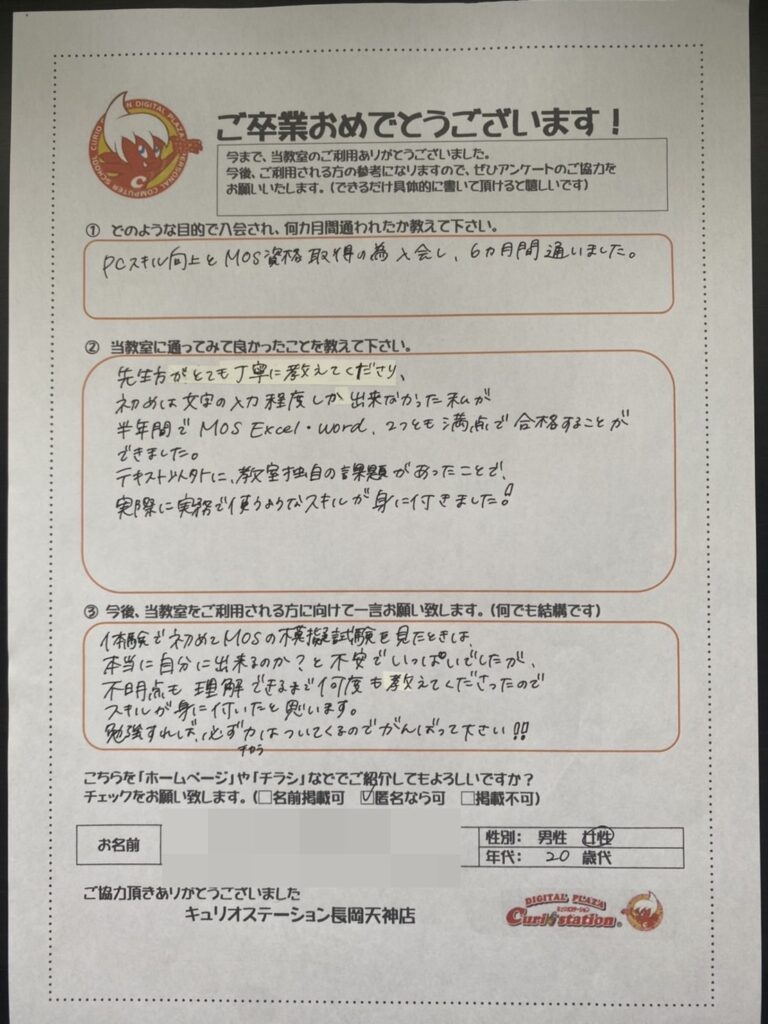 ご卒業おめでとうございます！
今まで、当教室のご利用ありがとうございました。
今後、ご利用される方の参考になりますので、ぜひアンケートのご協力を
お願いいたします。(できるだけ具体的に書いて頂けると嬉しいです)
① どのような目的で入会され、何カ月間通われたか教えて下さい。
PCスキル向上とMOS資格取得の為入会し、6カ月間通いました。
② 当教室に通ってみて良かったことを教えて下さい。
先生方がとても丁寧に教えてくださり、
初めは文字の入力程度しか出来なかった私が
半年間でMOS Excel・Word、2つとも満点で合格することが
できました。
テキスト以外に、教室独自の課題があったことで、
実際に実務で使うようなスキルが身に付きました!
③ 今後、当教室をご利用される方に向けて一言お願い致します。(何でも結構です)
体験で初めてMOSの模擬試験を見たときは、
本当に自分に出来るのか?と不安でいっぱいでしたが、
不明点も理解できるまで何度も教えてくださったので
スキルが身に付いたと思います。
勉強すれば、必ず力はついてくるのでがんばって下さい!!
ちから
こちらを「ホームページ」や「チラシ」などでご紹介してもよろしいですか？
チェックをお願い致します。(□名前掲載可 ☑匿名なら可 □掲載不可)
お名前
性別: 男性 女性
年代: 20 歳代
ご協力頂きありがとうございました
キュリオステーション長岡天神店
DIGITAL PLAZA
Curio station